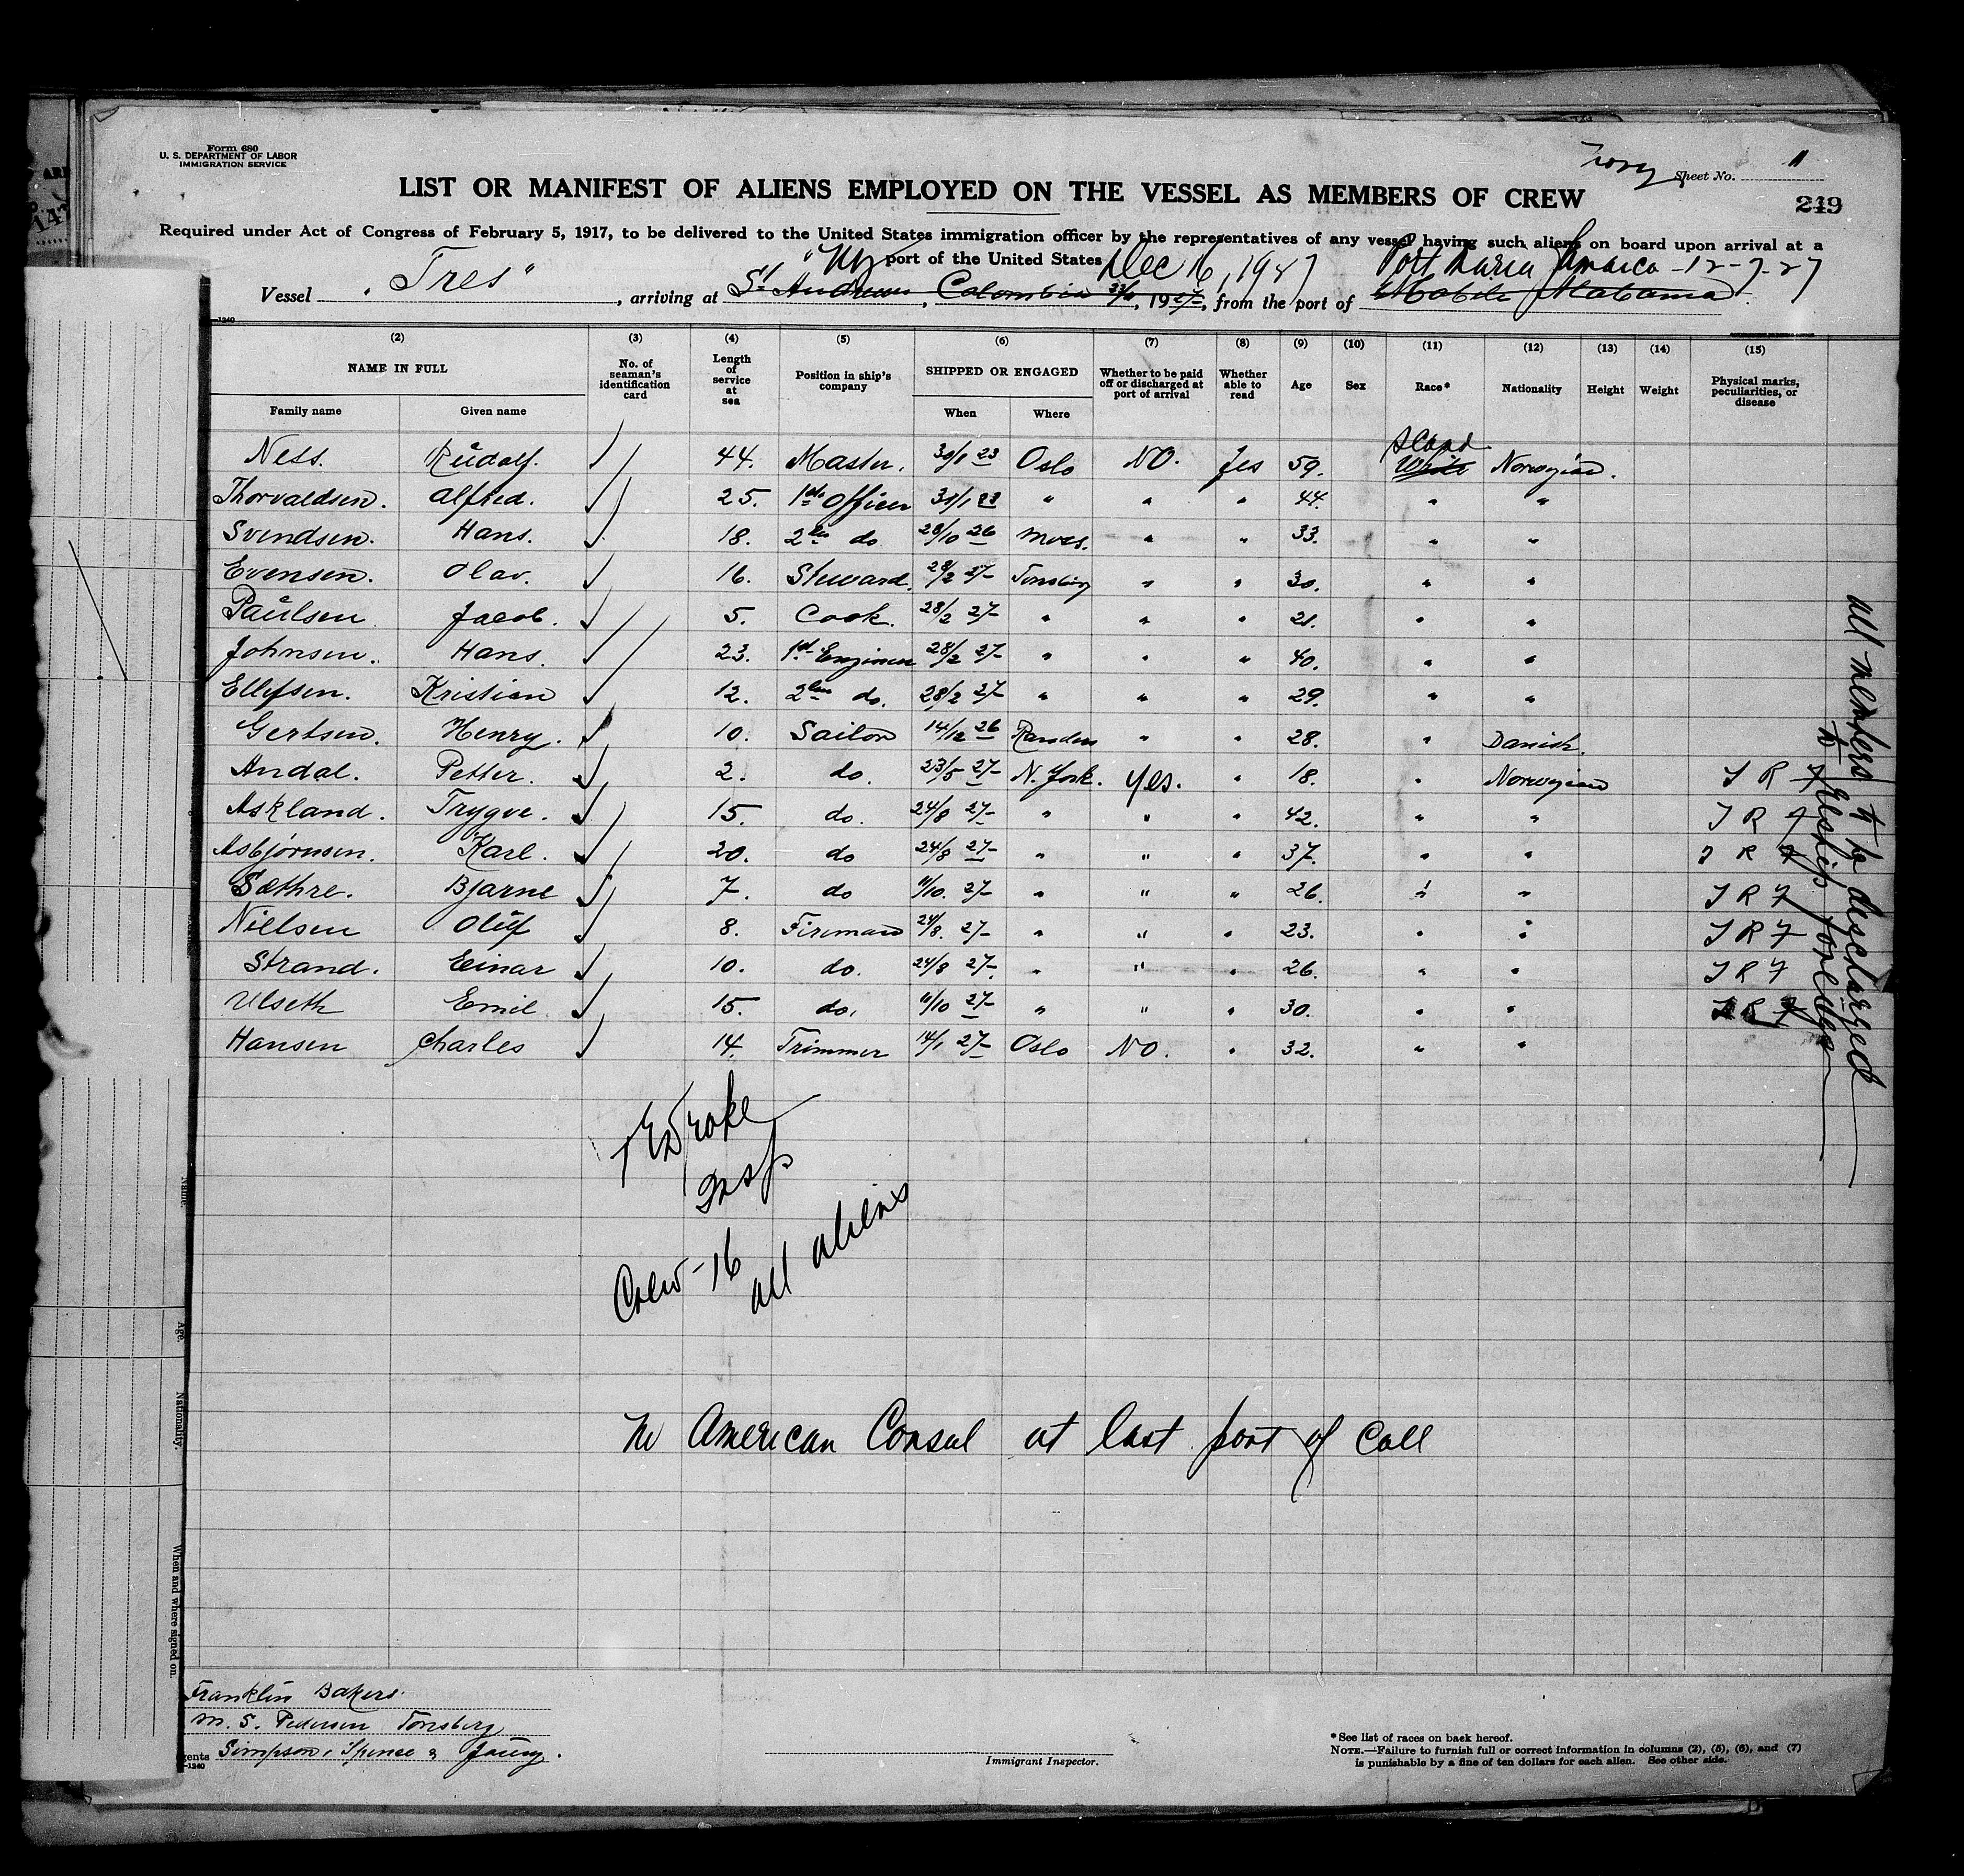 Form 680
U. S. DEPARTMENT OF LABOR
IMMIGRATION SERVICE
Sheet No. 1
LIST OR MANIFEST OF ALIENS EMPLOYED ON THE VESSEL AS MEMBERS OF CREW
249
Required under Act of Congress of February 5, 1917, to be delivered to the United States immigration officer by the representatives of any vessel having such aliens on board upon arrival at a
port of the United States
NY Dec 16, 1927 Port Maria Jamaica - 12-7-27
Vessel "Tres", arriving at St Andrews, Colombia 23/11, 1927, from the port of Mobile Alabama
(2) (3) (4) (5) (6) (7) (8) (9) (10) (11) (12) (13) (14) (15)
NAME IN FULL No. of seaman's identification card Length of service at sea Position in ship's company SHIPPED OR ENGAGED Whether to be paid off or discharged at port of arrival Whether able to read Age Sex Race* Nationality Height Weight Physical marks, peculiarities, or disease
Family name Given name When Where
Scand
Ness. Rudolf. 44. Master. 30/1 23 Oslo NO. Yes 59. White Norwegian.
Thorvaldsen. Alfred. 25. 1st Officer 31/1 23 " " " 44. " "
Svendsen. Hans. 18. 2en do 28/10 26 Moss. " " 33. " "
Evensen. Olav. 16. Steward. 28/2 27 Tonsberg " " 30. " "
Paulsen Jacob. 5. Cook. 28/2 27 " " " 21. " "
Johnsen. Hans. 23. 1st Engineer 28/2 27 " " " 40. " "
Ellefsen. Kristian 12. 2en do. 28/2 27 " " " 29. " "
Gertsen. Henry. 10. Sailor 14/12 26 Randers " " 28. " Danish.
Andal. Petter. 2. do. 23/5 27 N. York. Yes. " 18. " Norwegian J R F
Askland. Trygve. 15. do. 24/8 27 " " " 42. " " J R F
Asbjørnsen. Karl. 20. do 24/8 27 " " " 37. " " J R F
Sæthre. Bjarne 7. do 11/10. 27 " " " 26. " " J R F
Nielsen Oluf 8. Fireman 24/8. 27 " " " 23. " " J R F
Strand. Einar 10. do. 24/8 27 " " " 26. " " J R F
Ulseth Emil 15. do. 11/10 27 " " " 30. " " J R F
Hansen Charles 14. Trimmer 14/1 27 Oslo NO. " 32. " "
All members to be discharged
to reship foreign
Drake
Insp
Crew - 16
all aliens
No American Consul at last port of call
Franklin Bakers.
M. S. Pedersen Tonsberg
gents Simpson, Spence & Young.
-1240
Immigrant Inspector.
* See list of races on back hereof.
NOTE.—Failure to furnish full or correct information in columns (2), (5), (6), and (7)
is punishable by a fine of ten dollars for each alien. See other side.
Name.
Age.
Nationality.
When and where signed on.